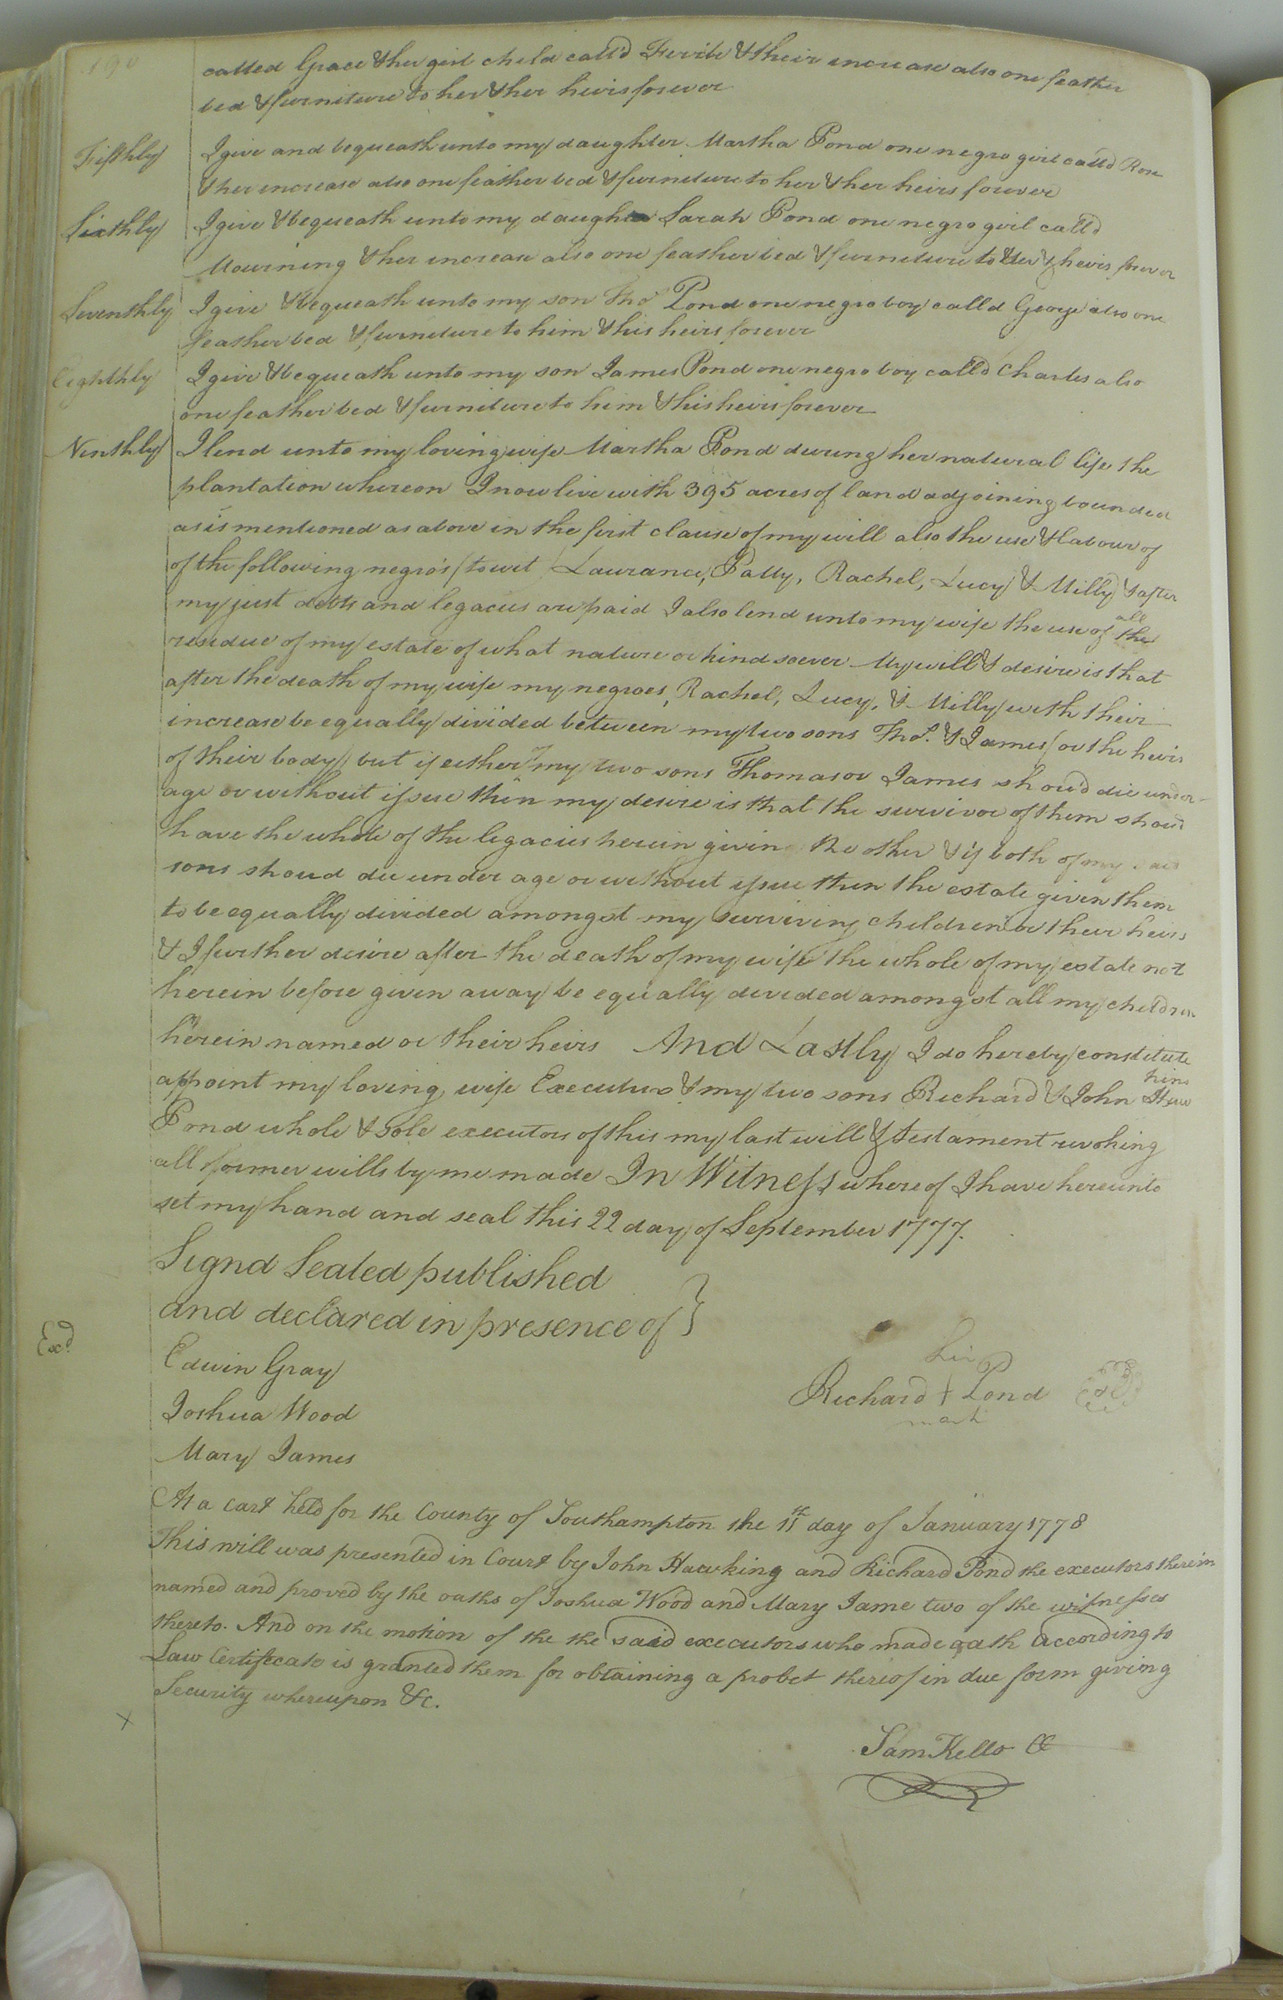 190
called Grace & her girl child calld Feribe & their increase also one feather
bed & furniture to her & her heirs forever
Fifthly I give and bequeath unto my daughter Martha Pond one negro girl calld Rose
& her increase also one feather bed & furniture to her & her heirs forever
Sixthly I give & bequeath unto my daughter Sarah Pond one negro girl calld
Mourning & her increase also one feather bed & furniture to her & heirs forever
Seventhly I give & bequeath unto my son Thos. Pond one negro boy calld George also one
feather bed & furniture to him & his heirs forever
Eighthly I give & bequeath unto my son James Pond one negro boy calld Charles also
one feather bed & furniture to him & his heirs forever
Ninthly I lend unto my loving wife Martha Pond during her natural life the
plantation whereon I now live with 395 acres of land adjoining bounded
as is mentioned as above in the first clause of my will also the use & labour of
of the following negro's (to wit) Laurance, Patty, Rachel, Lucy & Milly & after
my just debts and legacies are paid I also lend unto my wife the use of all the
residue of my estate of what nature or kind soever My will & desire is that
after the death of my wife my negroes, Rachel, Lucy, & Milly with their
increase be equally divided between my two sons Thos. & James (or the heirs
of their body) but if either my two sons Thomas or James shoud die under
age or without issue then my desire is that the survivor of them shoud
have the whole of the legacies herein given the other & if both of my said
sons shoud die under age or without issue then the estate given them
to be equally divided amongst my surviving children or their heirs
& I further desire after the death of my wife the whole of my estate not
herein before given away be equally divided amongst all my children
herein named or their heirs And Lastly I do hereby constitute
appoint my loving wife Executrix & my two sons Richard & John Haw
kins
Pond whole & sole executors of this my last will & testament revoking
all former wills by me made In Witness whereof I have hereunto
set my hand and seal this 22 day of September 1777.
Signd Sealed published
and declared in presence of }
Exd.
Edwin Gray
Joshua Wood
Mary James
his
Richard + Pond
mark
At a cart held for the County of Southampton the 11th day of January 1778
This will was presented in Court by John Hawking and Richard Pond the executors therein
named and proved by the oaths of Joshua Wood and Mary Jame two of the witnesses
thereto. And on the motion of the the said executors who made oath according to
Law Certificate is granted them for obtaining a probet thereof in due form giving
Security whereupon &c.
x
Sam Kello CC